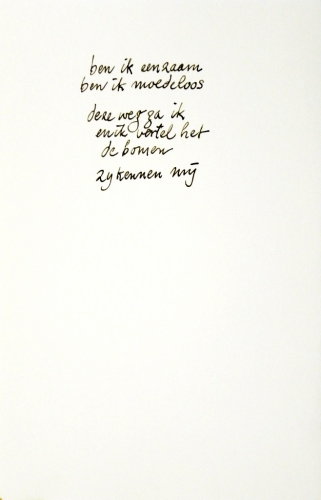 ben ik eenzaam
ben ik moedeloos
deze weg ga ik
en ik vertel het
de bomen
zij kennen mij